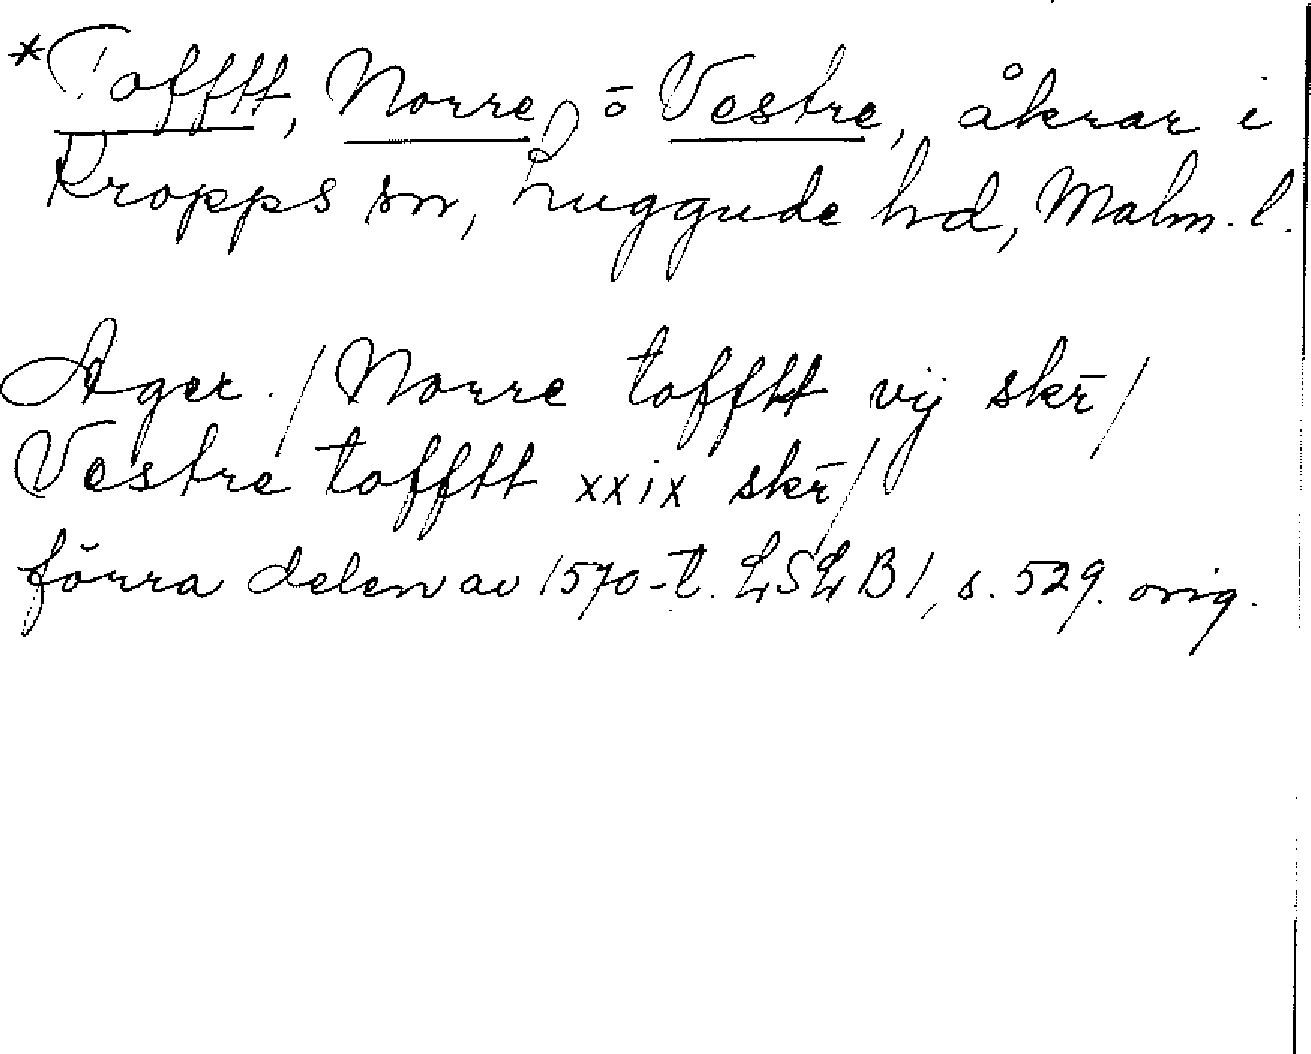 *Tofftt, Norre ō Vestre, åkrar i
Kropps sn, Luggude hd, Malm. l.
Ager. / Norre tofftt vij skr̄ /
Vestre tofftt xxix skr̄ /
förra delen av 1570-t. LSLB 1, s. 529. orig.